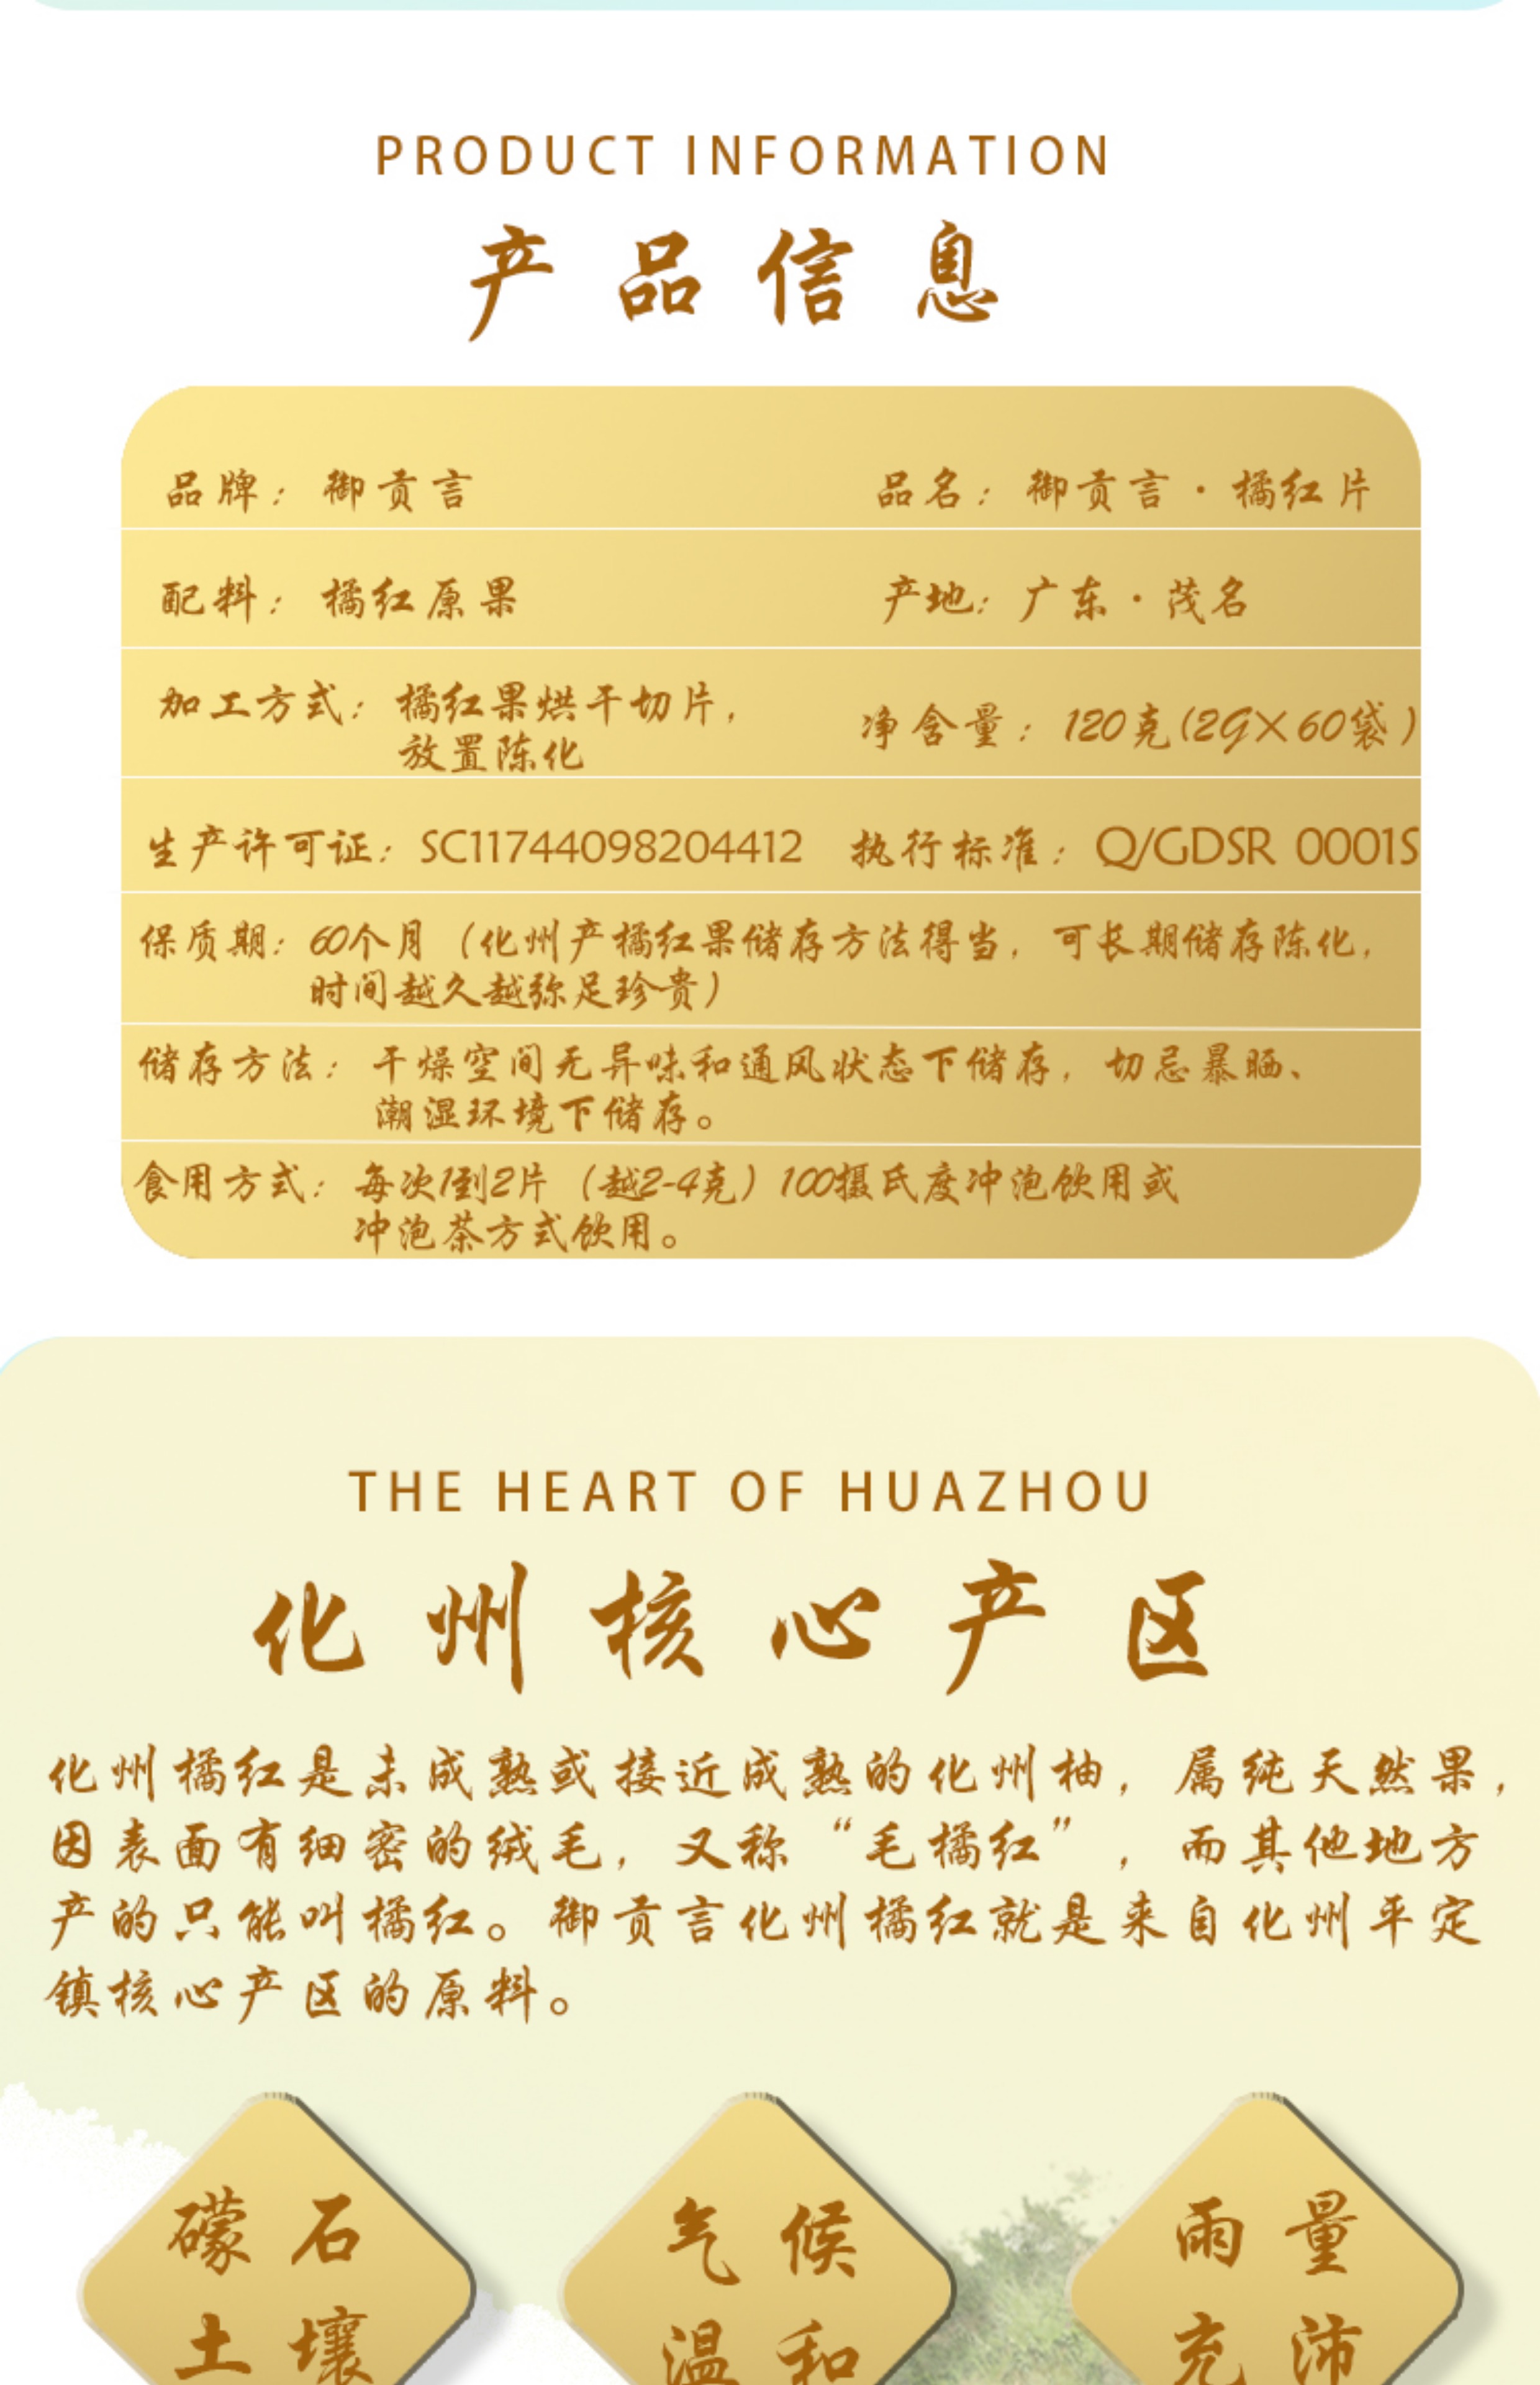 PRODUCT INFORMATION
产品信息
品牌：御贡言
品名：御贡言·橘红片
配料：橘红原果
产地：广东·茂名
加工方式：橘红果烘干切片，
放置陈化
净含量：120克(2G×60袋)
生产许可证：SC11744098204412
执行标准：Q/GDSR 0001S
保质期：60个月（化州产橘红果储存方法得当，可长期储存陈化，
时间越久越弥足珍贵）
储存方法：干燥空间无异味和通风状态下储存，切忌暴晒、
潮湿环境下储存。
食用方式：每次1到2片（越2-4克）100摄氏度冲泡饮用或
冲泡茶方式饮用。
THE HEART OF HUAZHOU
化州核心产区
化州橘红是未成熟或接近成熟的化州柚，属纯天然果，
因表面有细密的绒毛，又称“毛橘红”，而其他地方
产的只能叫橘红。御贡言化州橘红就是来自化州平定
镇核心产区的原料。
礞石
土壤
气候
温和
雨量
充沛